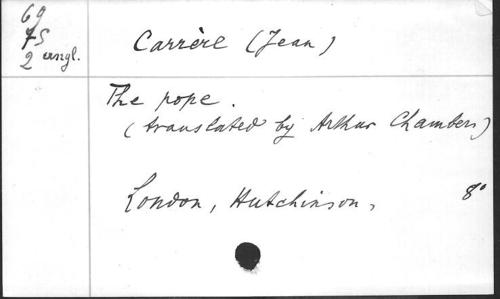 69
75
2 angl.
Carrère (Jean)
The pope.
(translated by Arthur Chambers)
London, Hutchinson, 8°